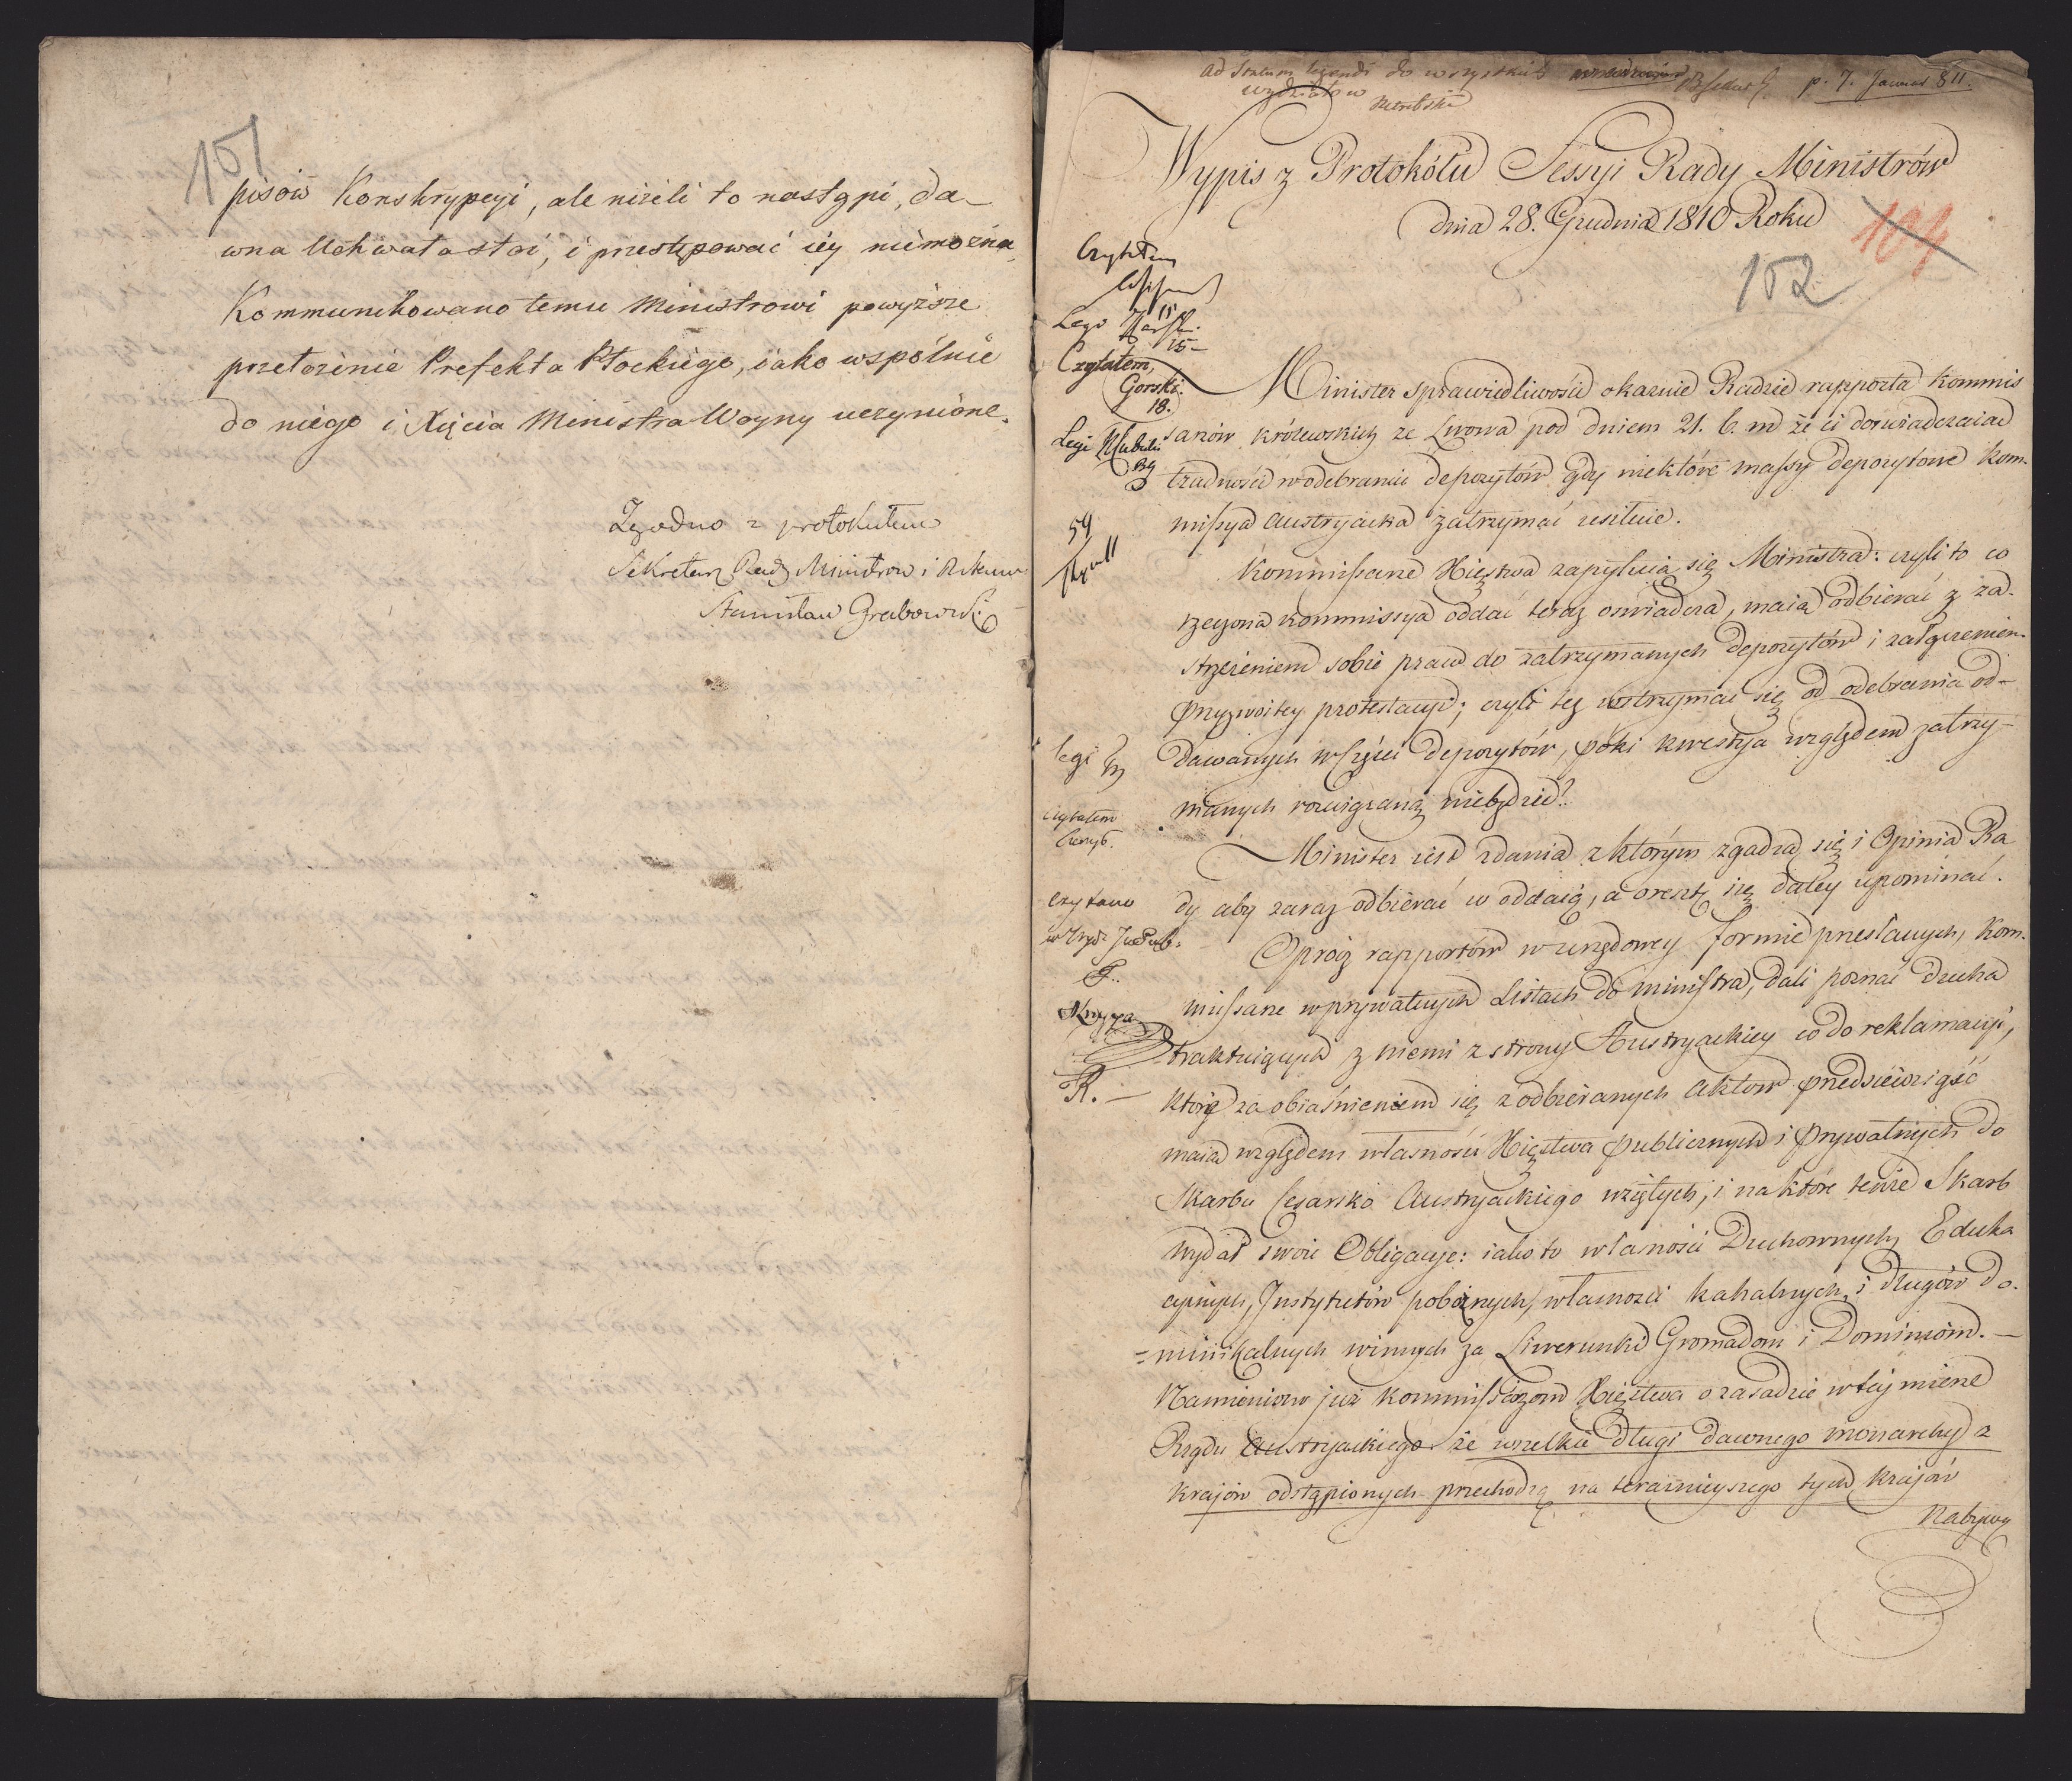 151
pisów Konskrypcyi, ale niżeli to nastąpi, da-
wna Uchwała stoi, i przestępować iéy niemożna.
Kommunikowano temu Ministrowi powyższe
przełożenie Prefekta Płockiego, iako wspólnie
do niego i Xięcia Ministra Woyny uczynione.
Zgodno z protokułem
Sekretarz Rady Ministrow i
Stanisław Grabowski
ad statum legendi do wszystkich p. 7. Januar 811.
wydziałow
Wypis z Protokółu Sessyi Rady Ministrów
dnia 28. Grudnia 1810 Roku
104
152
Czytałem
Lego
15-
Czytałem,
Gorski.
18.
Legi
59
Minister sprawiedliwości okazuie Radzie rapporta Kommis
sarzów królewskich ze Lwowa pod dniem 21. b. m że ci doświadczaiąd
trudności w odebraniu depozytów gdy niektóre massy depozytowe Kom-
missya Austryacka zatrzymać usiłuie.
Kommissarze Xięstwa zapytuią się Ministra: czyli to co
rzeczona Kommissya oddać teraz oświadcza, maią odbierać z za-
strzeżeniem sobie praw do zatrzymanych depozytów i załączeniem
przyzwoitey protestacyi; czyli też wstrzymać się od odebrania od-
dawanych w części depozytów, póki kwestya względem zatrzy-
manych rozwiązaną niebędzie?
legi
czytałem
Minister iest zdania z którym zgadza się i Opinia Ra
dy aby zaraz odbierać co oddaią, a oresztę się daley upominać.
czytano
w Wydz
Oprócz rapportów w urzędowey formie przesłanych, Kom-
missarze w prywatnych Listach do Ministra, dali poznać ducha
traktuiących z niemi z strony Austryackiey co do reklamacyi,
R.-
którą za obiaśnieniem się z odbieranych aktów przedsięwziąść
maią względem własności Xięstwa publicznych i prywatnych do
Skarbu Cesarsko Austryackiego wziętych, i na które tenże Skarb
wydał swoie Obligacye: iako to własności Duchownych, Eduka
cyinych, Instytutów pobożnych, własności kahalnych, i długów Do-
=minikalnych winnych za Liwerunki Gromadom i Dominiom.-
Namieniono już Kommissarzom Xięstwa o zasadzie w tey mierze
Rządu Austryackiego że wszelkie długi dawnego monarchy z
krajów odstąpionych przechodzą na teraźnieyszego tych krajów
Nabywcę